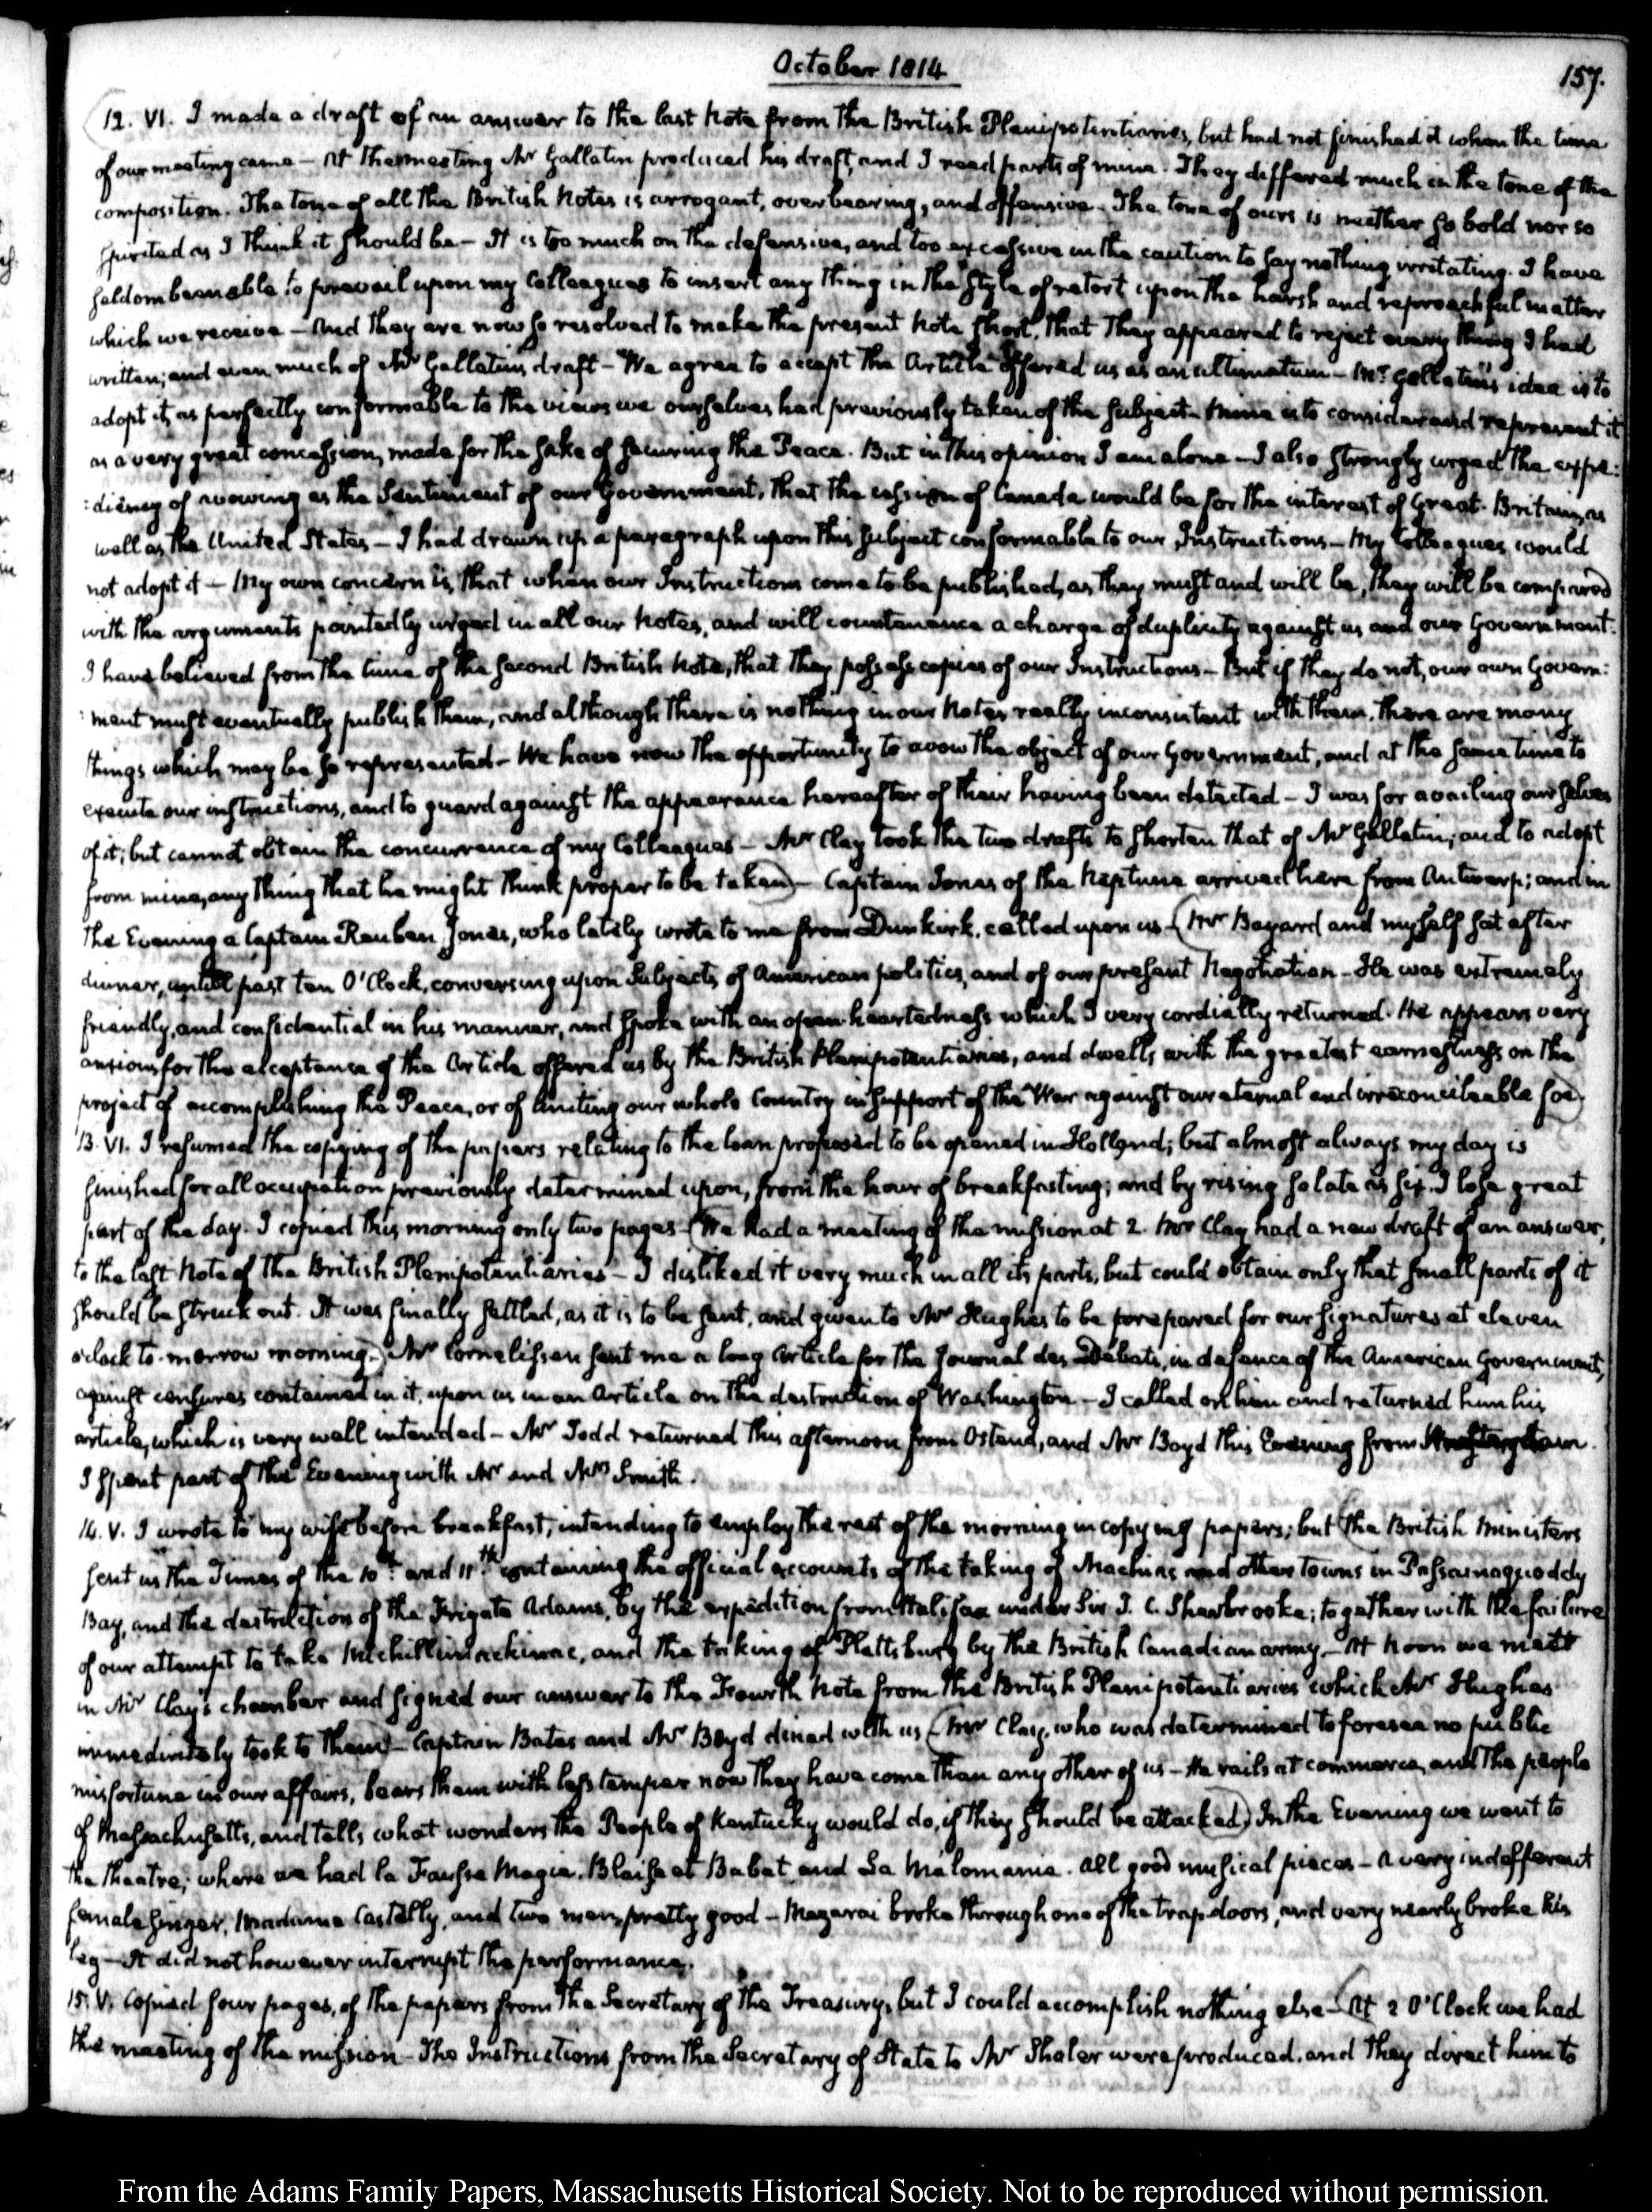 October 1814
157.
12. VI. I made a draft of an answer to the last Note from the British Plenipotentiaries, but had not finished it when the time
of our meeting came — At the meeting Mr Gallatin produced his draft, and I read parts of mine. They differed much in the tone of the
composition. The tone of all the British Notes is arrogant, overbearing, and offensive. The tone of ours is neither so bold nor so
spirited as I think it should be — It is too much on the defensive, and too excessive in the caution to say nothing irritating. I have
seldom been able to prevail upon my Colleagues to insert any thing in the style of retort upon the harsh and reproachful matter
which we receive — And they are now so resolved to make the present Note short, that they appeared to reject every thing I had
written; and even much of Mr Gallatin's draft — We agree to accept the Article offered us as an ultimatum — Mr. Gallatin's idea is to
adopt it, as perfectly conformable to the views we ourselves had previously taken of the subject — Mine is to consider and represent it
as a very great concession, made for the sake of securing the Peace. But in this opinion I am alone — I also strongly urged the expe:
:diency of avowing as the Sentiment of our Government, that the cession of Canada would be for the interest of Great-Britain, as
well as the United States — I had drawn up a paragraph upon this subject conformable to our Instructions — My Colleagues would
not adopt it — My own concern is, that when our Instructions come to be published, as they must and will be, they will be compared
with the arguments pointedly urged in all our Notes, and will countenance a charge of duplicity against us and our Government:
I have believed from the time of the second British Note, that they possess copies of our Instructions — But if they do not, our own Govern:
:ment must eventually publish them, and although there is nothing in our Notes really inconsistent with them, there are many
things which may be so represented — We have now the opportunity to avow the object of our Government, and at the same time to
execute our instructions, and to guard against the appearance hereafter of their having been detected — I was for availing ourselves
of it; but cannot obtain the concurrence of my Colleagues — Mr Clay took the two drafts to shorten that of Mr Gallatin; and to adopt
from mine, any thing that he might think proper to be taken) — Captain Jones of the Neptune arrived here from Antwerp; and in
the Evening a Captain Reuben Jones, who lately wrote to me from Dunkirk, called upon us — (Mr Bayard and myself sat after
dinner, untill past ten O'Clock, conversing upon Subjects of American politics, and of our present Negotiation — He was extremely
friendly, and confidential in his manner, and spoke with an open-heartedness which I very cordially returned. He appears very
anxious for the acceptance of the Article offered us by the British Plenipotentiaries, and dwells with the greatest earnestness on the
project of accomplishing the Peace, or of uniting our whole Country in support of the War against our eternal and irreconcileable foe)
13. VI. I resumed the copying of the papers relating to the loan proposed to be opened in Holland; but almost always my day is
finished for all occupation previously determined upon, from the hour of breakfasting; and by rising so late as six. I lose great
part of the day. I copied this morning only two pages — (We had a meeting of the mission at 2. Mr Clay had a new draft of an answer,
to the last Note of the British Plenipotentiaries — I disliked it very much in all its parts, but could obtain only that small parts of it
should be struck out. It was finally settled, as it is to be sent, and given to Mr Hughes to be prepared for our signatures at eleven
o'clock to-morrow morning.) Mr Cornelissen sent me a long Article for the Journal des Débats, in defence of the American Government,
against censures contained in it, upon us in an Article on the destruction of Washington — I called on him and returned him his
article, which is very well intended — Mr Todd returned this afternoon from Ostend, and Mr Boyd this Evening from
I spent part of the Evening with Mr and Mrs Smith.
14. V. I wrote to my wife before breakfast, intending to employ the rest of the morning in copying papers; but (the British Ministers
sent us the Times of the 10th. and 11th containing the official accounts of the taking of Machias and other towns in Passamaquoddy
Bay, and the destruction of the Frigate Adams, by the expedition from Halifax under Sir J. C. Sherbrooke; together with the failure
of our attempt to take Michillimackinac, and the taking of Plattsburg by the British Canadian army — At Noon we mett
in Mr Clay's chamber and signed our answer to the Fourth Note from the British Plenipotentiaries which Mr Hughes
immediately took to them) — Captain Bates and Mr Boyd dined with us — (Mr Clay, who was determined to foresee no public
misfortune in our affairs, bears them with less temper now they have come than any other of us — He rails at commerce, and the people
of Massachusetts, and tells what wonders the People of Kentucky would do, if they should be attacked) In the Evening we went to
the theatre; where we had la Fausse Magie. Blaise et Babet and La Mélomanie. All good musical pieces — A very indifferent
female Singer, Madame Castelly, and two men pretty good — Mazarai broke through one of the trap doors, and very nearly broke his
leg — It did not however interrupt the performance.
15. V. Copied four pages, of the papers from the Secretary of the Treasury, but I could accomplish nothing else — (At 2 O'Clock we had
the meeting of the mission — The Instructions from the Secretary of State to Mr Shaler were produced, and they direct him to
From the Adams Family Papers, Massachusetts Historical Society. Not to be reproduced without permission.